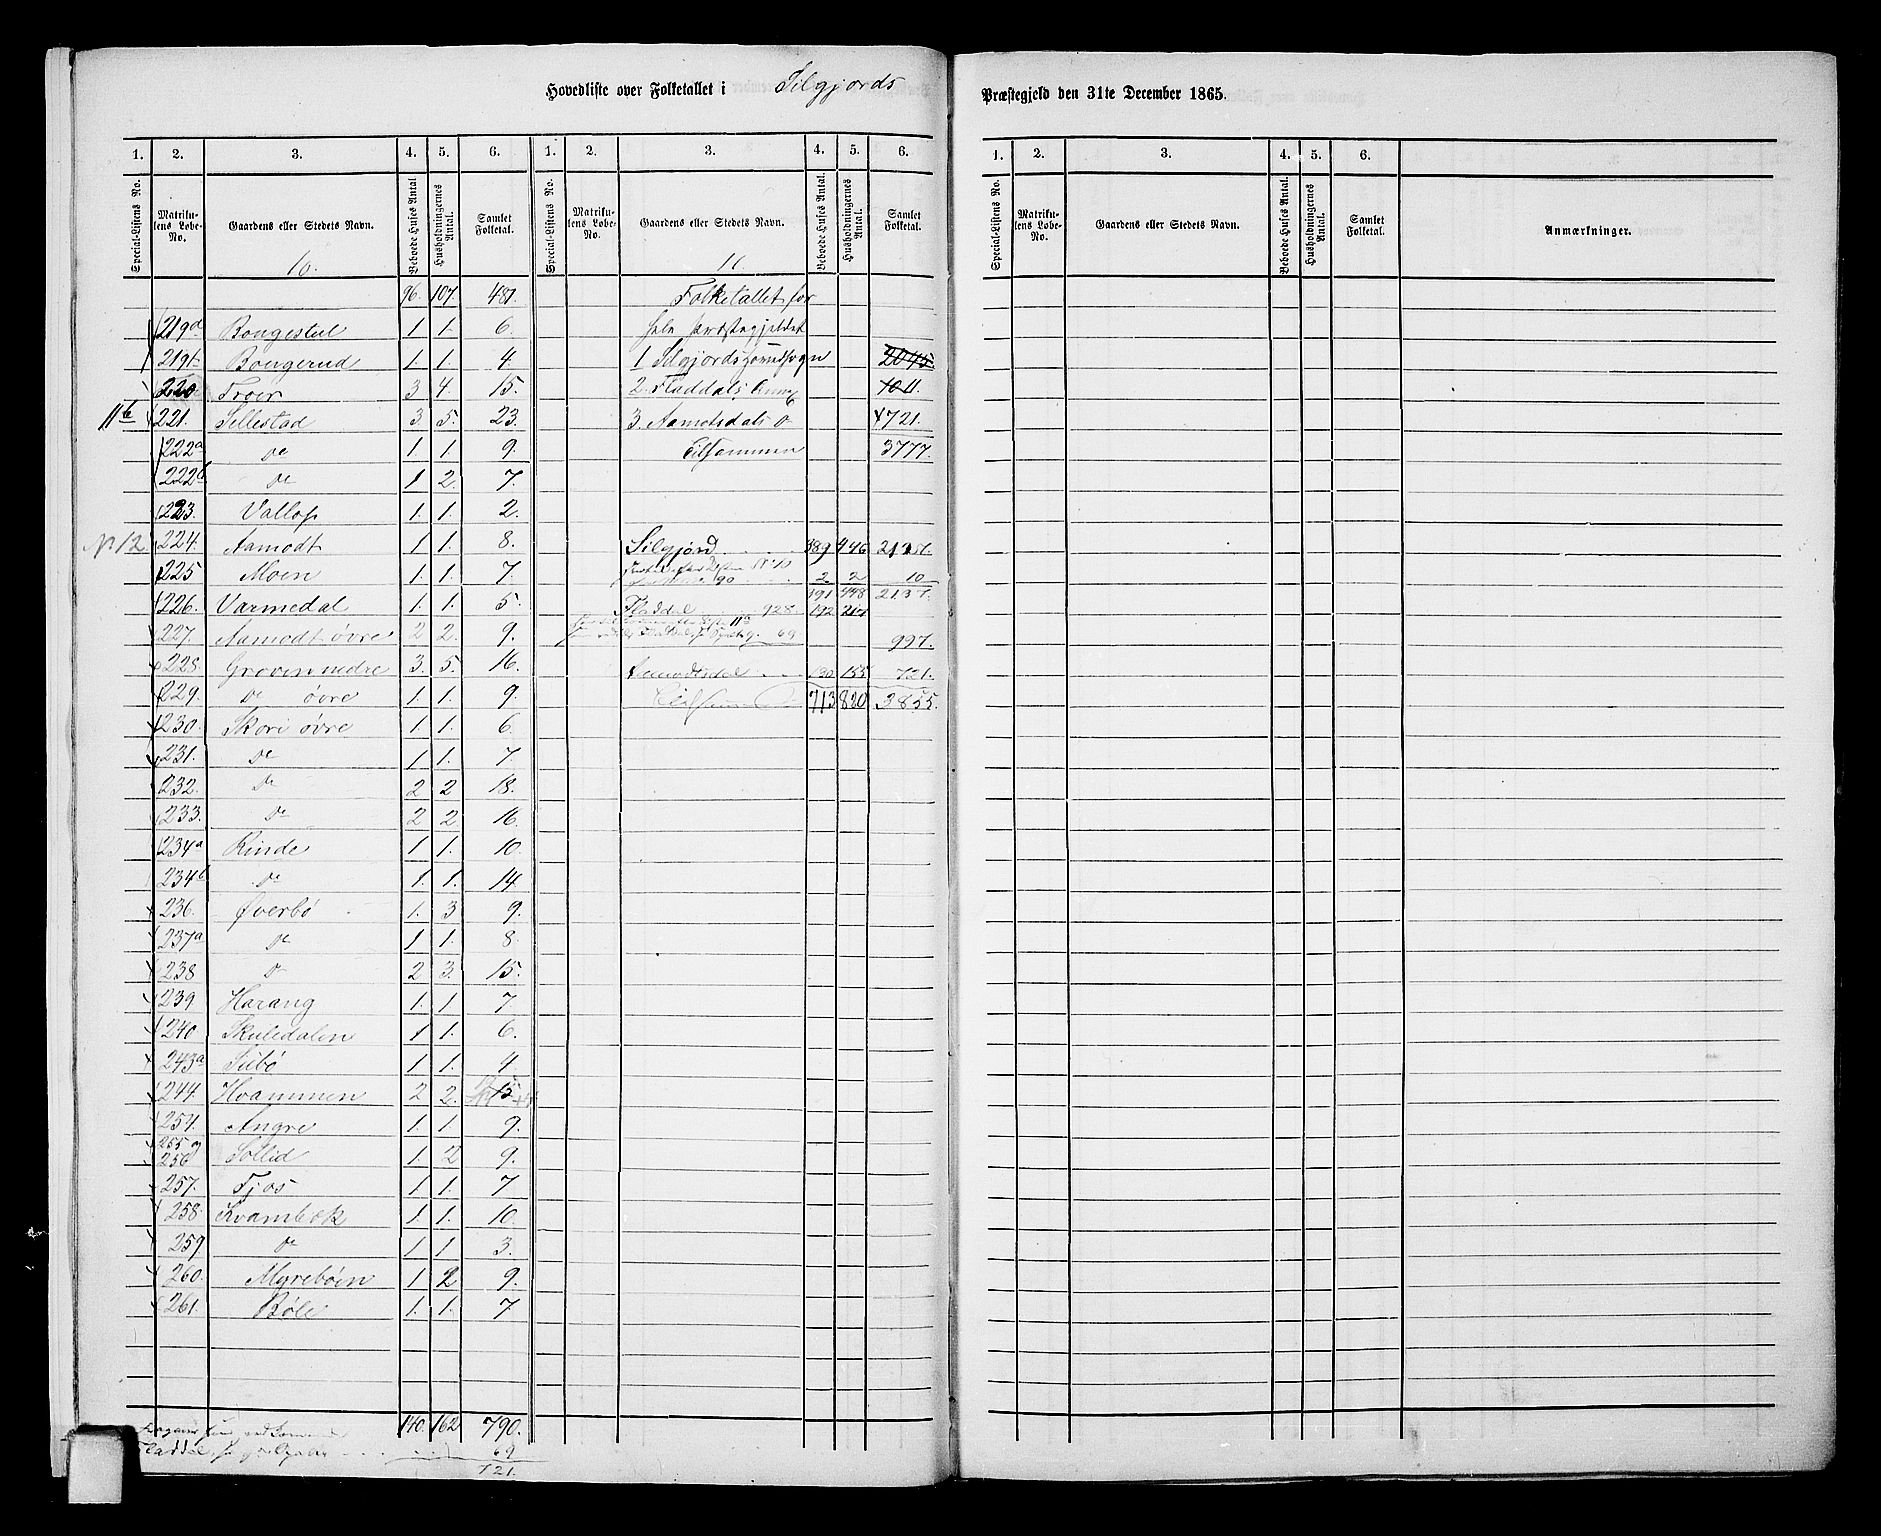 Hovedliste over Folketallet i Silgjords
1. 2. 3. 4. 5. 6. 1. 2. 3. 4. 5. 6.
Special-Listens No. Matrikulens Løbe-No. Gaardens eller Stedets Navn. Beboede Huses Antal Husholdningernes Antal. Samlet Folketal. Special-Listens No. Matrikulens Løbe-No. Gaardens eller Stedets Navn. Beboede Huses Antal. Husholdningernes Antal. Samlet Folketal.
10. 11.
96. 107. 481.
219a Bongestul 1 1. 6.
219b Bongerud 1 1. 4.
220 Froer 3 4. 15.
11b 221. Sellestad 3. 5. 23.
222a do 1 1. 9.
222b do 1 2. 7.
223. Vallop 1. 1. 2.
No 12 224. Aamodt 1 1. 8.
225 Moen 1. 1. 7.
226. Varmedal 1. 1. 5.
227. Aamodt øvre 2 2. 9.
228. Groven nedre 3. 5. 16.
229. do øvre 1. 1. 9.
230. Skori øvre 1. 1. 6.
231. do 1 1. 7
232. do 2 2 18.
233. do 2 2. 16.
234a Rinde 1 1. 10.
234b do 1. 1. 14
236. Øverbø 1. 3 9.
237a do 1 1. 8.
238 do 2 3. 15.
239. Harang 1. 1 7.
240 Skuledalen 1 1. 6.
243a Siibø 1 1. 4.
244. Hvammen 2 2. 15
254. Angre 1. 1. 9.
255 og 256 Sollid 1. 2 9.
257. Fjos 1 1. 7
258. Kvambek 1. 1. 10
259 do 1 1 3.
260. Myrebøen 1 2 9.
261. Bøle 1. 1. 7.
140. 162 790.
69
721.
Folketallet for
hele Præstegjeldet
1 Silgjords Hovedsogn 2045.
2. Fladdals Annex 1011.
3. Aamotsdals do 721.
Tilsammen 3777.
Silgjord 389 446 2127.
2 2 10
191 448 2137.
Fladdal 928. 192 217
69
997.
Aamodtsdal 130 155 721.
Tilsammen 713 820 3855.
Præstegjeld den 31te December 1865.
1. 2. 3. 4. 5. 6.
Special-Listens No. Matrikulens Løbe-No. Gaardens eller Stedets Navn. Beboede Huses Antal. Husholdningernes Antal. Samlet Folketal. Anmærkninger.